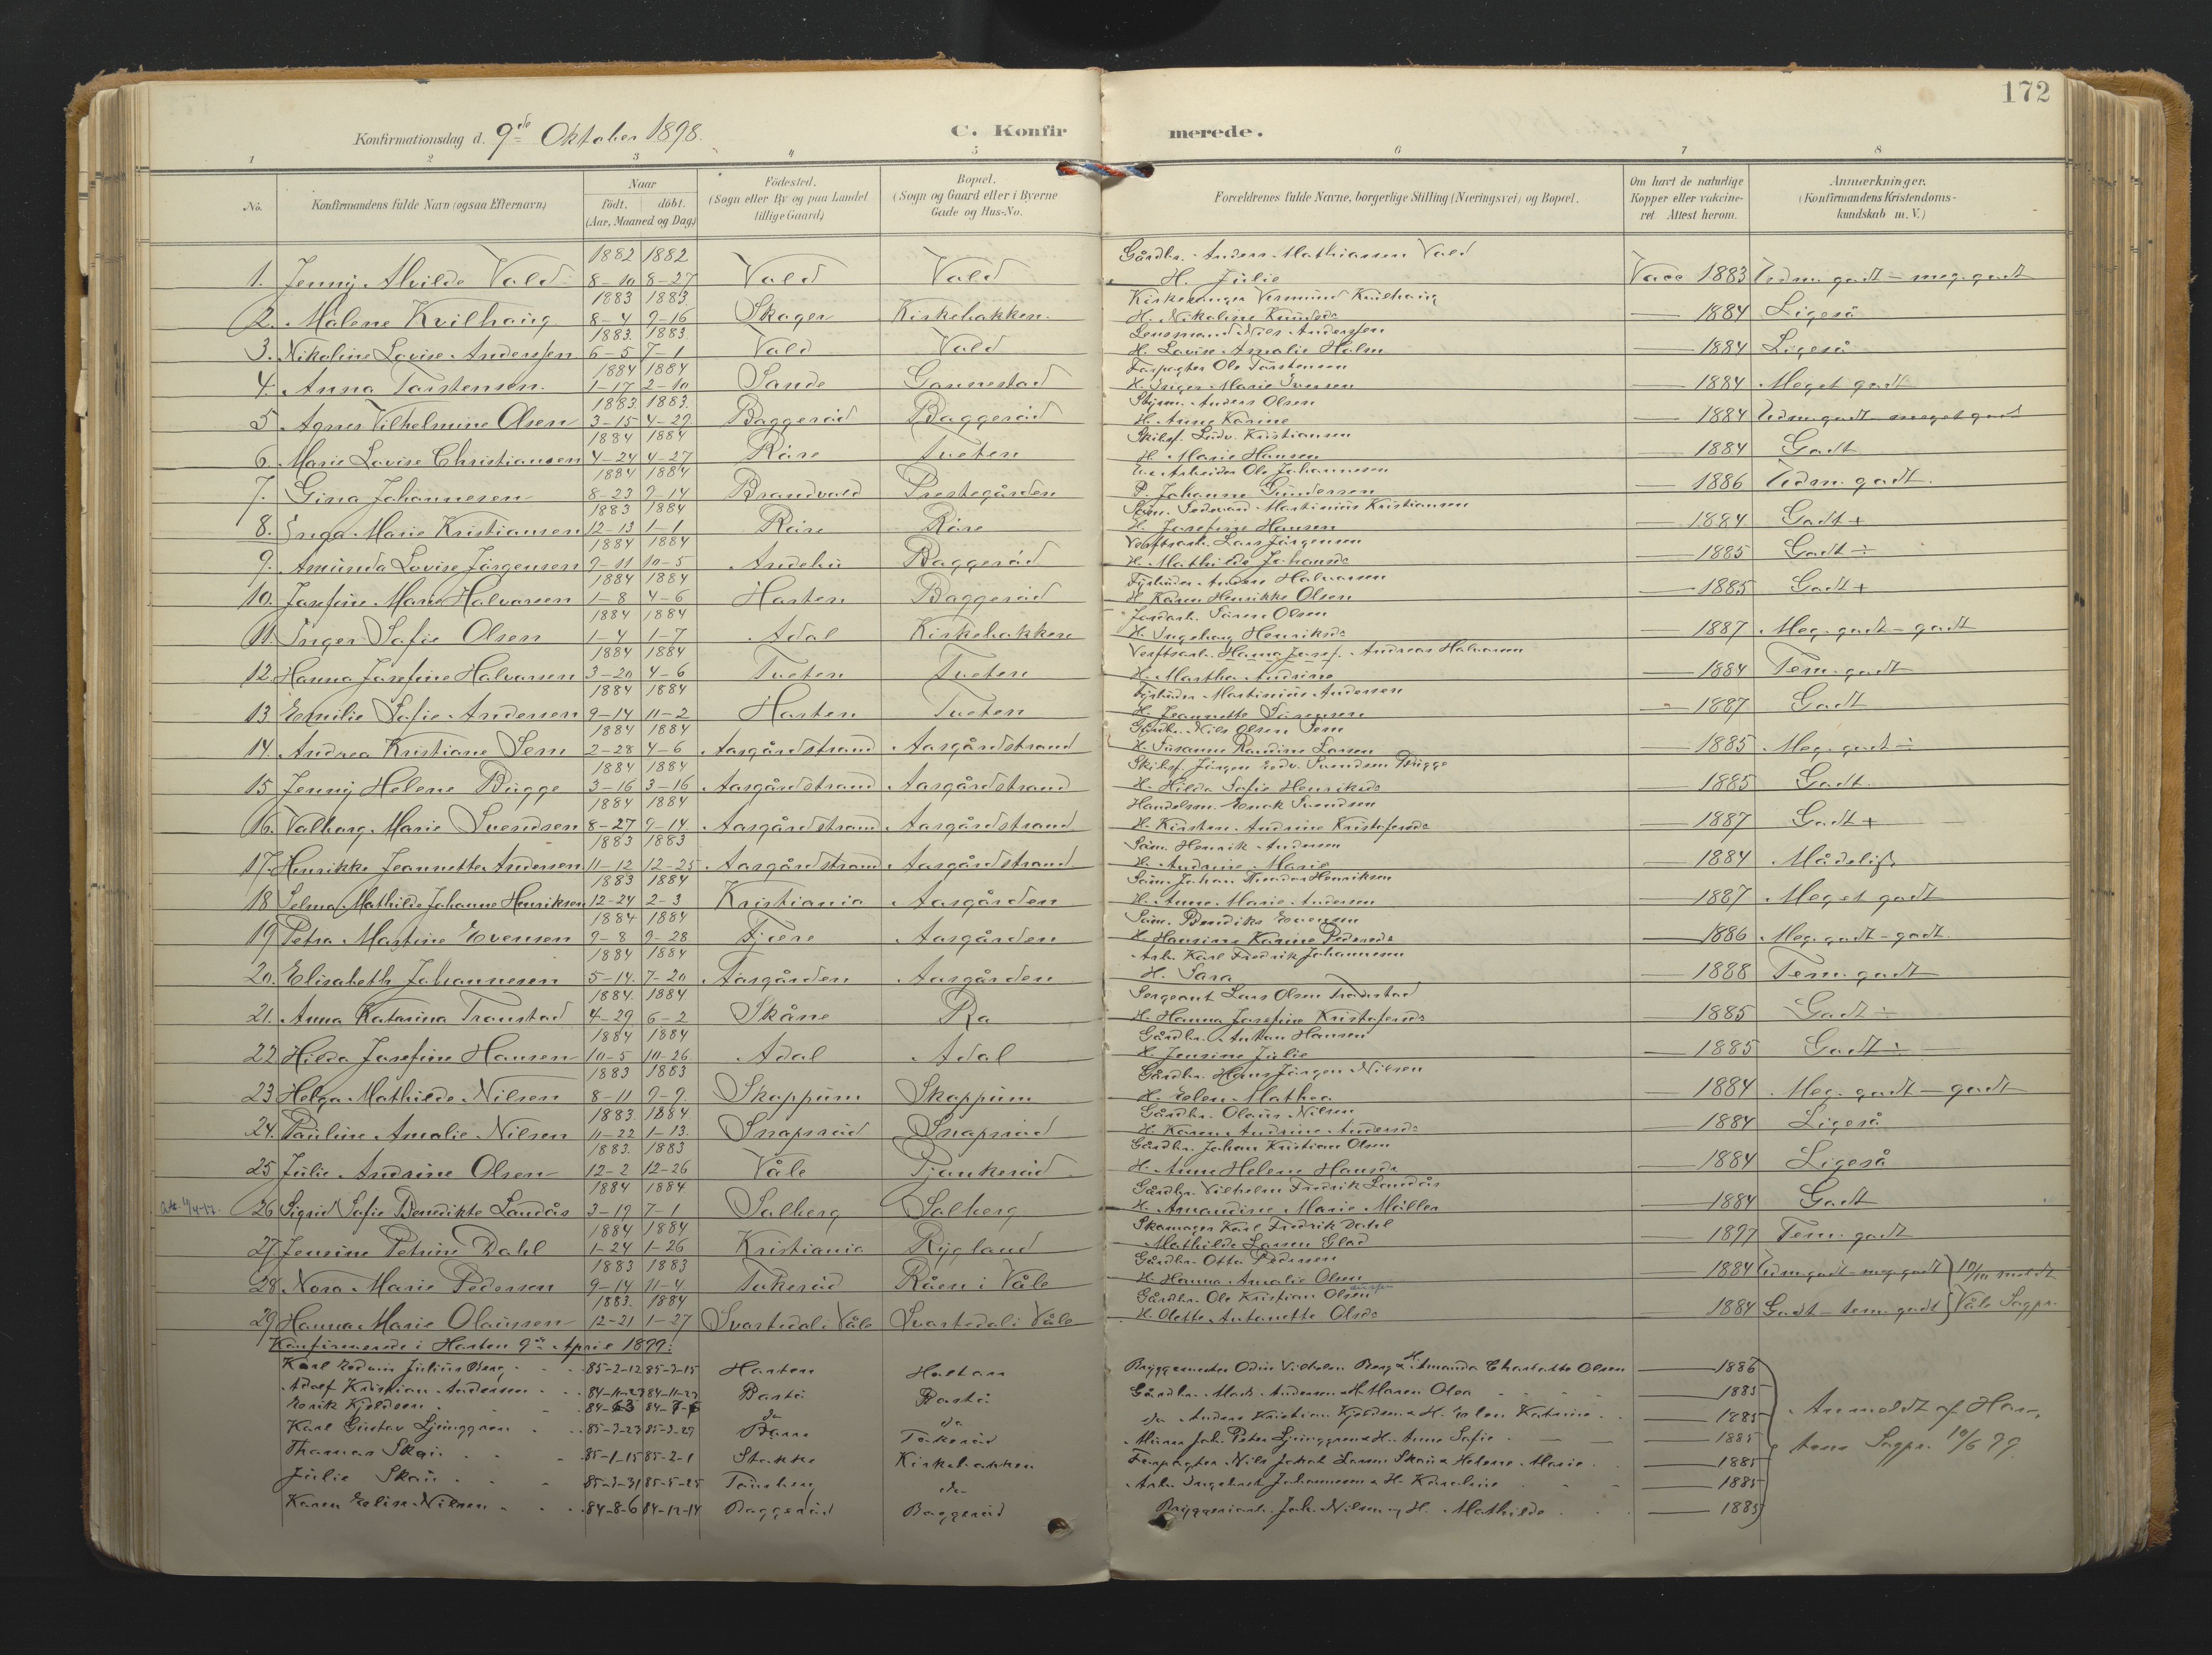 172
Konfirmationsdag d. 9de Oktober 1898.
C. Konfirmerede.
1 2 3 4 5 6 7 8
No.
Konfirmandens fulde Navn (ogsaa Efternavn)
Naar
født. døbt.
(Aar, Maaned og Dag)
Fødested.
(Sogn eller By og paa Landet
tillige Gaard)
Bopæl.
(Sogn og Gaard eller i Byerne
Gade og Hus-No.
Forældrenes fulde Navne, borgerlige Stilling (Næringsvei) og Bopæl.
Om havt de naturlige
Kopper eller vakcine-
ret Attest herom.
Anmærkninger.
(Konfirmandens Kristendoms-
kundskab m. V.)
1882 1882 Gårdbr. Anders Mathiassen Vold
1. Jenny Alvilde Vold 8-10 8-27 Vold Vold H. Julie Vacc 1883 Udm. godt - meg. godt
1883 1883 Kirkesanger Vermund Kvilhaug
2. Malene Kvilhaug 8-4 9-16 Skoger Kirkebakken H. Nikoline Knudsdr 1884 Ligeså
1883 1883 Lensmand Nils Anderssen
3. Nikoline Lovise Anderssen 6-5 7-1 Vold Vold H. Lovise Amalie Holm 1884 Ligeså
1884 1884 Forpagter Ole Torstensen
4. Anna Torstensen 1-17 2-10 Sande Gannestad H. Inger Marie Iversen 1884 Meget godt
1883 1883 Styrm. Anders Olsen
5 Agnes Vilhelmine Olsen 3-15 4-29 Baggerød Baggerød H. Anne Karine 1884 Udm. godt - meget godt
1884 1884 Skibsf. Ludv. Kristiansen
6. Marie Lovise Christiansen 4-24 4-27 Røre Tveten H. Marie Hansen 1884 Godt
1884 1884 Arbeider Ole Johannesen
7. Gina Johannesen 8-23 9-14 Brandvold Prestegården P. Johanne Gundersen 1886 Udm. godt.
1883 1884 Martinius Kristiansen
8. Inga Marie Kristiansen 12-13 1-1 Røre Røre H. Josefine Hansen 1884 Godt +
1884 1884 Verftsarb. Lars Jørgensen
9. Amunda Lovise Jørgensen 9-11 10-5 Andebu Baggerød H. Mathilde Johansdr 1885 Godt ÷
1884 1884 Anders Halvorsen
10. Josefine Marie Halvorsen 1-8 4-6 Horten Baggerød H. Karen Henrikke Olsen 1885 Godt +
1884 1884 Jordarb. Søren Olsen
11. Inger Sofie Olsen 1-4 1-7 Adal Kirkebakken H. Ingeborg Henriksdr 1887 Meg. godt - godt
1884 1884 Verftsarb. Hanna Josef. Andreas Halvorsen
12. Hanna Josefine Halvorsen 3-20 4-6 Tveten Tveten H. Martha Andrine 1884 Tem. godt
1884 1884 Martinius Andersen
13 Emilie Sofie Andersen 9-14 11-2 Horten Tveten H. Jeannette Sørensen 1887 Godt
1884 1884 Gårdbr. Nils Olsen Sem
14. Andrea Kristiane Sem 2-28 4-6 Aasgårdstrand Aasgårdstrand H. Susanne Randine Larsen 1885 Meg. godt ÷
1884 1884 Skibsf. Jörgen Edv. Svendsen Bugge
15 Jenny Helene Bugge 3-16 3-16 Aasgårdstrand Aasgårdstrand H. Hilda Sofie Henriksdr 1885 Godt.
1884 1884 Handelsm. Enok Svendsen
16. Valborg Marie Svendsen 8-27 9-14 Aasgårdstrand Aasgårdstrand H. Kirsten Andrine Kristofersdr 1887 Godt +
1883 1883 Søm. Henrik Andersen
17. Henrikke Jeannette Andersen 11-12 12-25 Aasgårdstrand Aasgårdstrand H. Andrine Marie 1884 Mådelig
1883 1884 Søm. Johan Theodor Henriksen
18 Selma Mathilde Johanne Henriksen 12-24 2-3 Kristiania Aasgården H. Anne Marie Andersen 1887 Meget godt
1884 1884 Søm. Bendiks Evensen
19 Petra Martine Evensen 9-8 9-28 Fjære Aasgården H. Hansine Karine Pedersdr 1886 Meg. godt - godt.
1884 1884 Arb. Karl Fredrik Johannesen
20. Elisabeth Johannesen 5-14. 7-20 Aasgården Aasgården H. Sara 1888 Tem. godt
1884. 1884 Sergeant Lars Olsen Tronstad
21. Anna Katarina Tronstad 4-29 6-2 Skåne Ra H. Hanna Josefine Kristofersdr 1885 Godt ÷
1884 1884 Gårdbr. Anton Hansen
22 Hilda Josefine Hansen 10-5 10-26 Adal Adal H. Jensine Julie 1885 Godt ÷
1883 1883 Gårdbr. Hans Jörgen Nilsen
23 Helga Mathilde Nilsen 8-11 9-9. Skoppum Skoppum H. Elen Mathea 1884 Meg. godt - godt
1883. 1884 Gårdbr. Olaus Nilsen
24. Pauline Amalie Nilsen 11-22 1-13. Snapsrød Snapsrød H. Karen Andrine Andersdr 1884 Ligeså
1883. 1883 Gårdbr. Johan Kristian Olsen
25 Julie Andrine Olsen 12-2 12-26 Våle Pjonkerød H. Anne Helene Hansdr 1884 Ligeså
1884 1884 Gårdbr. Vilhelm Fredrik Landås
26 Sigrid Sofie Benedikte Landås 3-19 7-1 Solberg Solberg H. Amandine Marie Möller 1884 Godt
1884 1884 Skomager Karl Fredrik Dahl
27 Jensine Petrine Dahl 1-24 1-26 Kristiania Rygland Mathilde Larsen Glad 1897 Tem. godt
1883 1883 Gårdbr. Otto Pedersen
28. Nora Marie Pedersen 9-14 11-4 Tokerød Råen i Våle H. Hanna Amalie Olsen 1884 Udm. godt - meg. godt } 10/10 meldt
1883. 1884 Gårdbr. Ole Kristian Olsen
29 Hanna Marie Olaussen 12-21 1-27 Svartedal i Våle Svartedal i Våle H. Olette Antonette Olsdr 1884 Godt - tem. godt } Våle Sogpr.
Konfirmerede i Horten 9de April 1899:
Karl Edwin Julius Berg 85-2-12 85-3-15 Horten Holtan Bryggemester Odin Vilhelm Berg & H. Amanda Charlotte Olsen 1886
Adolf Kristian Andersen 84-11-23 84-11-23 Bastø Bastø Gårdbr. Mads Andersen & H. Maren Olea 1885
Enrik Kjeldsen do do do Anders Kristian Kjeldsen & H. Elen Katrine 1885
Karl Gustav Ljunggren 85-3-23 85-3-29 Borre Tokerød Murer Joh. Peter Ljunggren & H. Anne Sofie 1885
Thomas Skau 85-1-15 85-2-1 Stokke Kirkebakken Forpagter Nils Jakob Larsen Skau & Helene Marie 1885
Julie Skau 85-3-31 85-5-25 Tönsberg do Arb. Ingebret Johannesen & H. Karoline 1885
Karen Elise Nilsen 84-8-6 84-12-14 Baggerød Baggerød Bryggeriarb. Joh. Nilsen og H. Mathilde 1885
Anmeldt af Hor-
tens Sogpr. 10/6 99